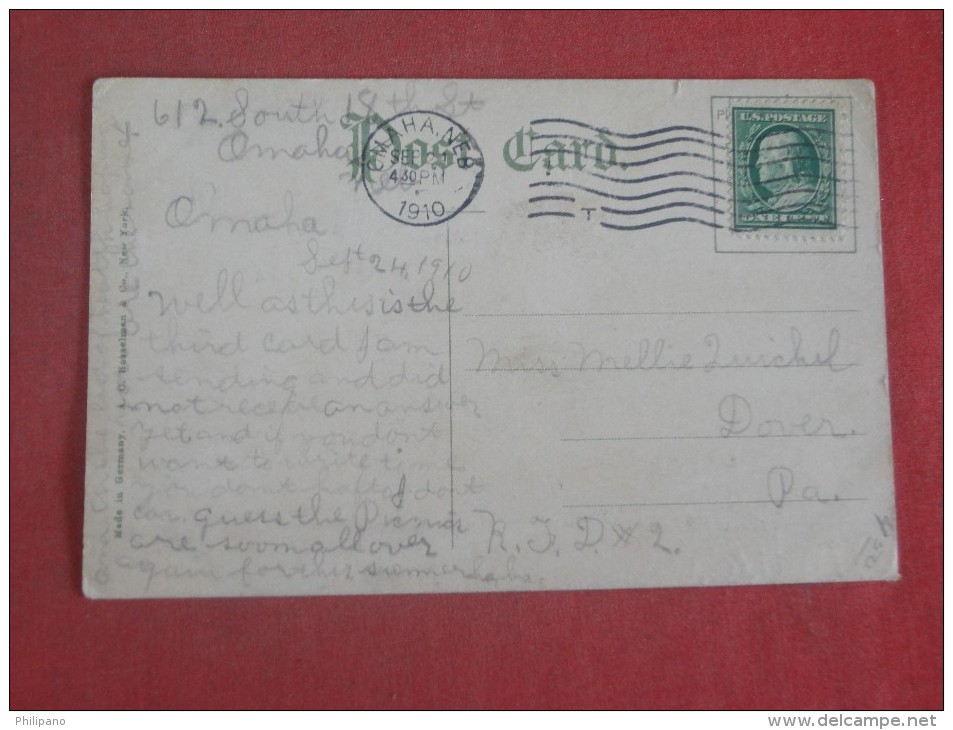 612 South 18th St
Omaha
Neb
Post Card.
OMAHA, NEB
SEP 24
4 30 PM
1910
T
U.S. POSTAGE
ONE CENT
Omaha
Sept 24, 1910
Well as this is the
third card I am
sending and did
not receive an answer
yet and if you dont
want to write to me
you dont haft to I dont
car. guess the Picnics
are soon all over
again for this summer
Miss Mellie Quickel
Dover.
Pa.
R. F. D # 2.
Made in Germany. A. C. Bosselman & Co., New York.
Philipano
www.delcampe.net